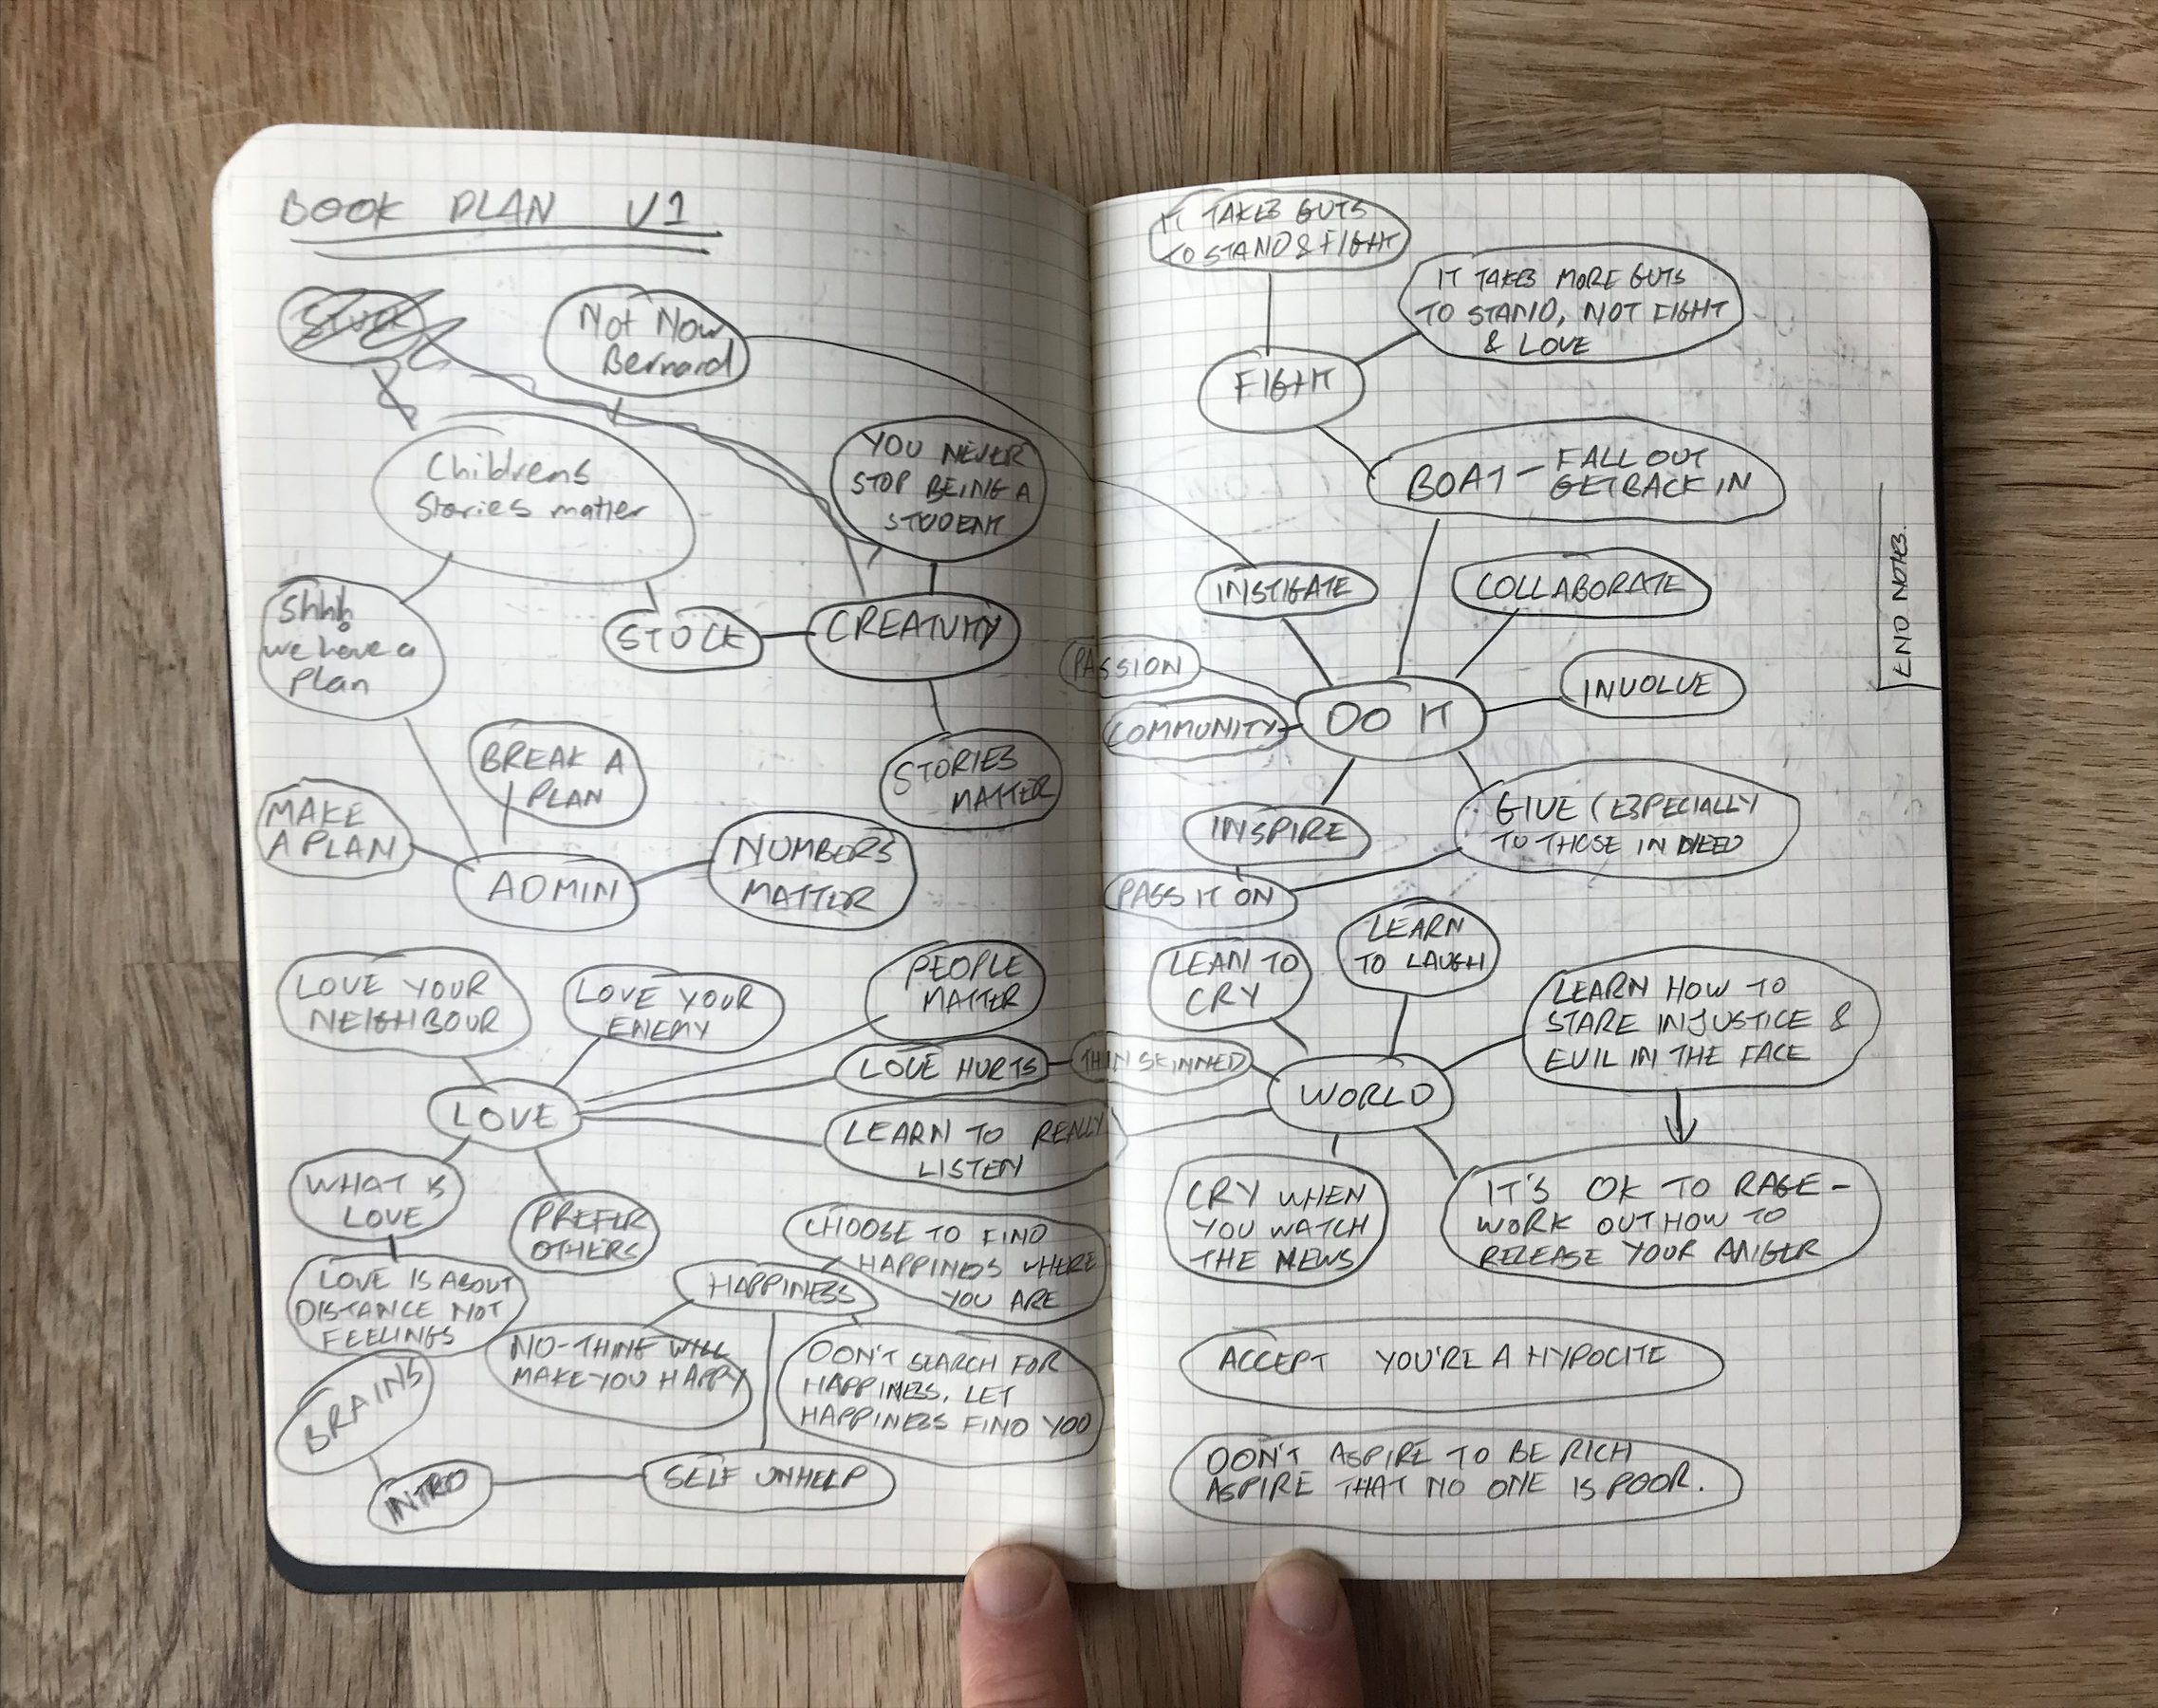 BOOK PLAN V1
STUCK
Not Now
Bernard
Childrens
Stories matter
YOU NEVER
STOP BEING A
STUDENT
Shhh
we have a
plan
STUCK
CREATIVITY
BREAK A
PLAN
STORIES
MATTER
MAKE
A PLAN
ADMIN
NUMBERS
MATTER
LOVE YOUR
NEIGHBOUR
LOVE YOUR
ENEMY
PEOPLE
MATTER
LOVE HURTS
THIN SKINNED
LOVE
LEARN TO REALLY
LISTEN
WHAT IS
LOVE
PREFER
OTHERS
CHOOSE TO FIND
HAPPINESS WHERE
YOU ARE
LOVE IS ABOUT
DISTANCE NOT
FEELINGS
HAPPINESS
NO-THING WILL
MAKE YOU HAPPY
DON'T SEARCH FOR
HAPPINESS, LET
HAPPINESS FIND YOU
BRAINS
INTRO
SELF UNHELP
IT TAKES GUTS
TO STAND & FIGHT
IT TAKES MORE GUTS
TO STAND, NOT FIGHT
& LOVE
FIGHT
BOAT - FALL OUT
GET BACK IN
INSTIGATE
COLLABORATE
END NOTES.
PASSION
INVOLVE
COMMUNITY
DO IT
INSPIRE
GIVE (ESPECIALLY
TO THOSE IN NEED
PASS IT ON
LEARN
TO LAUGH
LEAN TO
CRY
LEARN HOW TO
STARE INJUSTICE &
EVIL IN THE FACE
WORLD
CRY WHEN
YOU WATCH
THE NEWS
IT'S OK TO RAGE -
WORK OUT HOW TO
RELEASE YOUR ANGER
ACCEPT YOU'RE A HYPOCITE
DON'T ASPIRE TO BE RICH
ASPIRE THAT NO ONE IS POOR.